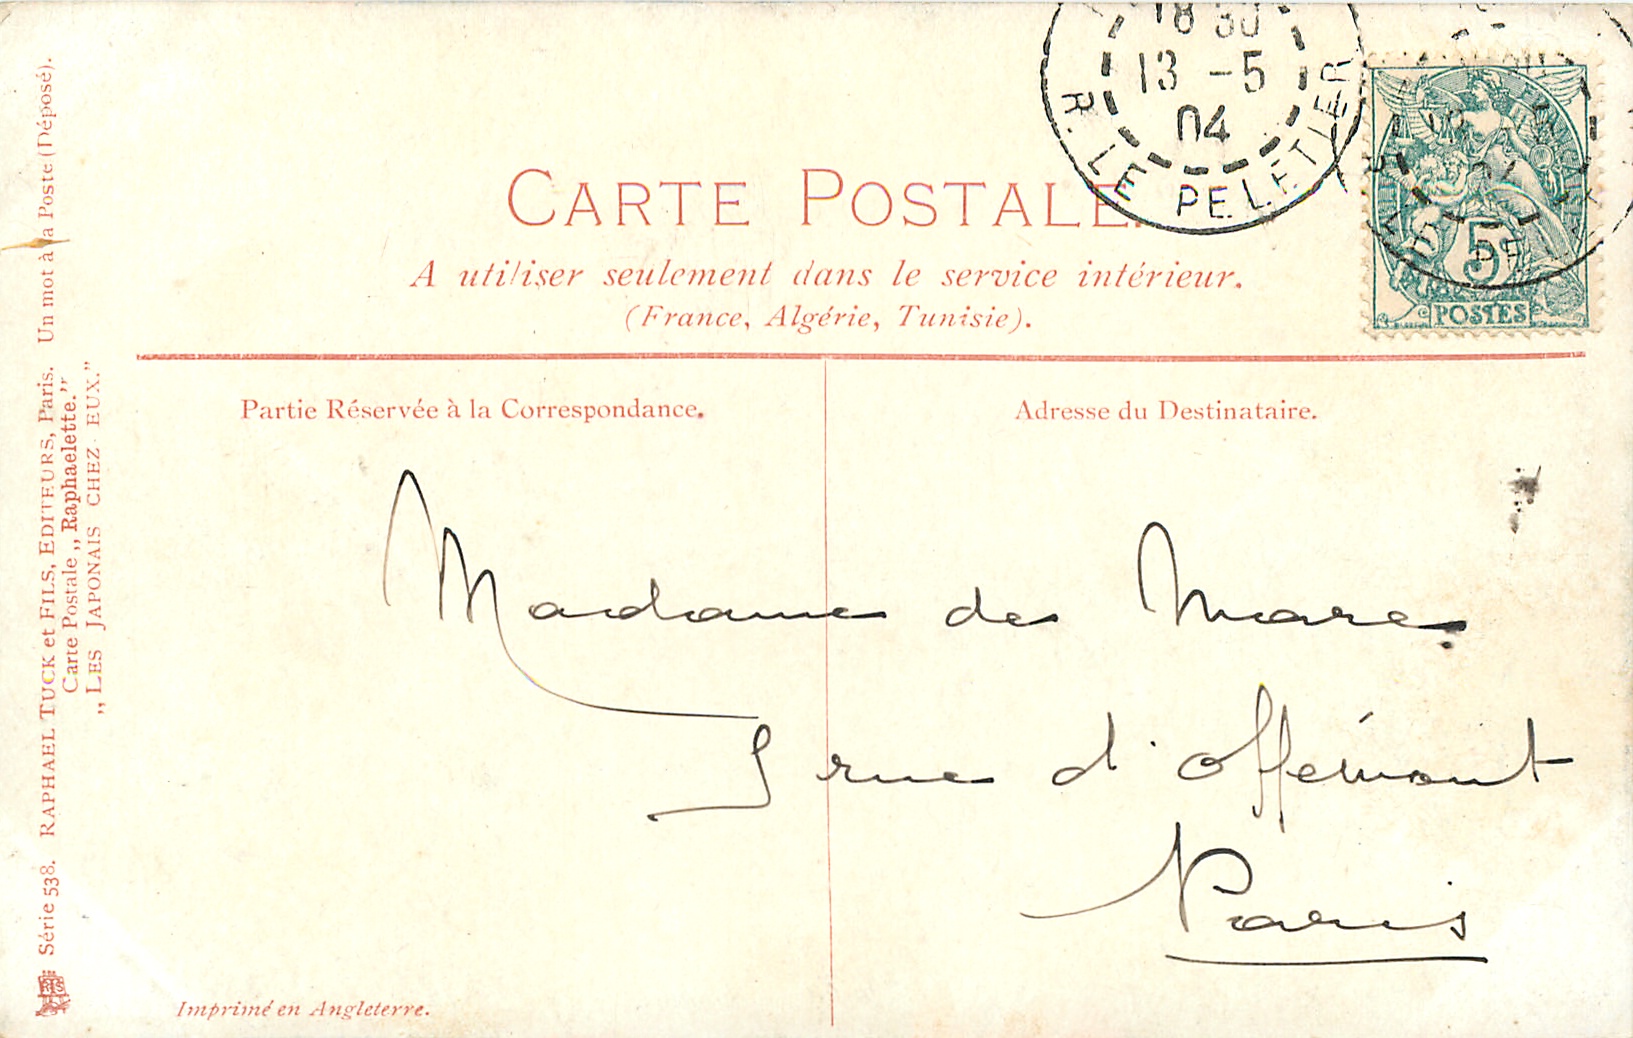 18 30
13 -5
04
R. LE PELETIER
5
POSTES
CARTE POSTALE.
A utiliser seulement dans le service intérieur.
(France, Algérie, Tunisie).
Partie Réservée à la Correspondance.
Adresse du Destinataire.
Madame de Mare
5 rue d'offémont
Paris
Série 538. RAPHAEL TUCK et FILS, EDITEURS, Paris. Un mot à la Poste (Déposé).
Carte Postale „Raphaelette."
„LES JAPONAIS CHEZ EUX."
Imprimé en Angleterre.